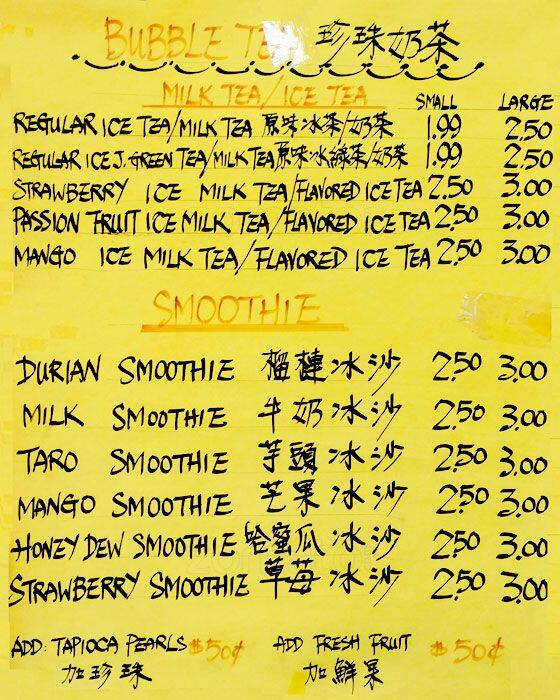 BUBBLE TEA 珍珠奶茶
MILK TEA/ICE TEA SMALL LARGE
REGULAR ICE TEA/MILK TEA 原味冰茶/奶茶 1.99 2.50
REGULAR ICE J. GREEN TEA/MILK TEA 原味冰綠茶/奶茶 1.99 2.50
STRAWBERRY ICE MILK TEA/FLAVORED ICE TEA 2.50 3.00
PASSION FRUIT ICE MILK TEA/FLAVORED ICE TEA 2.50 3.00
MANGO ICE MILK TEA/FLAVORED ICE TEA 2.50 3.00
SMOOTHIE
DURIAN SMOOTHIE 榴槤冰沙 2.50 3.00
MILK SMOOTHIE 牛奶冰沙 2.50 3.00
TARO SMOOTHIE 芋頭冰沙 2.50 3.00
MANGO SMOOTHIE 芒果冰沙 2.50 3.00
HONEY DEW SMOOTHIE 哈蜜瓜冰沙 2.50 3.00
STRAWBERRY SMOOTHIE 草莓冰沙 2.50 3.00
ADD: TAPIOCA PEARLS $50¢ ADD FRESH FRUIT $50¢
加珍珠 加鮮果